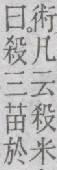 術凡云殺米
曰殺三苗於